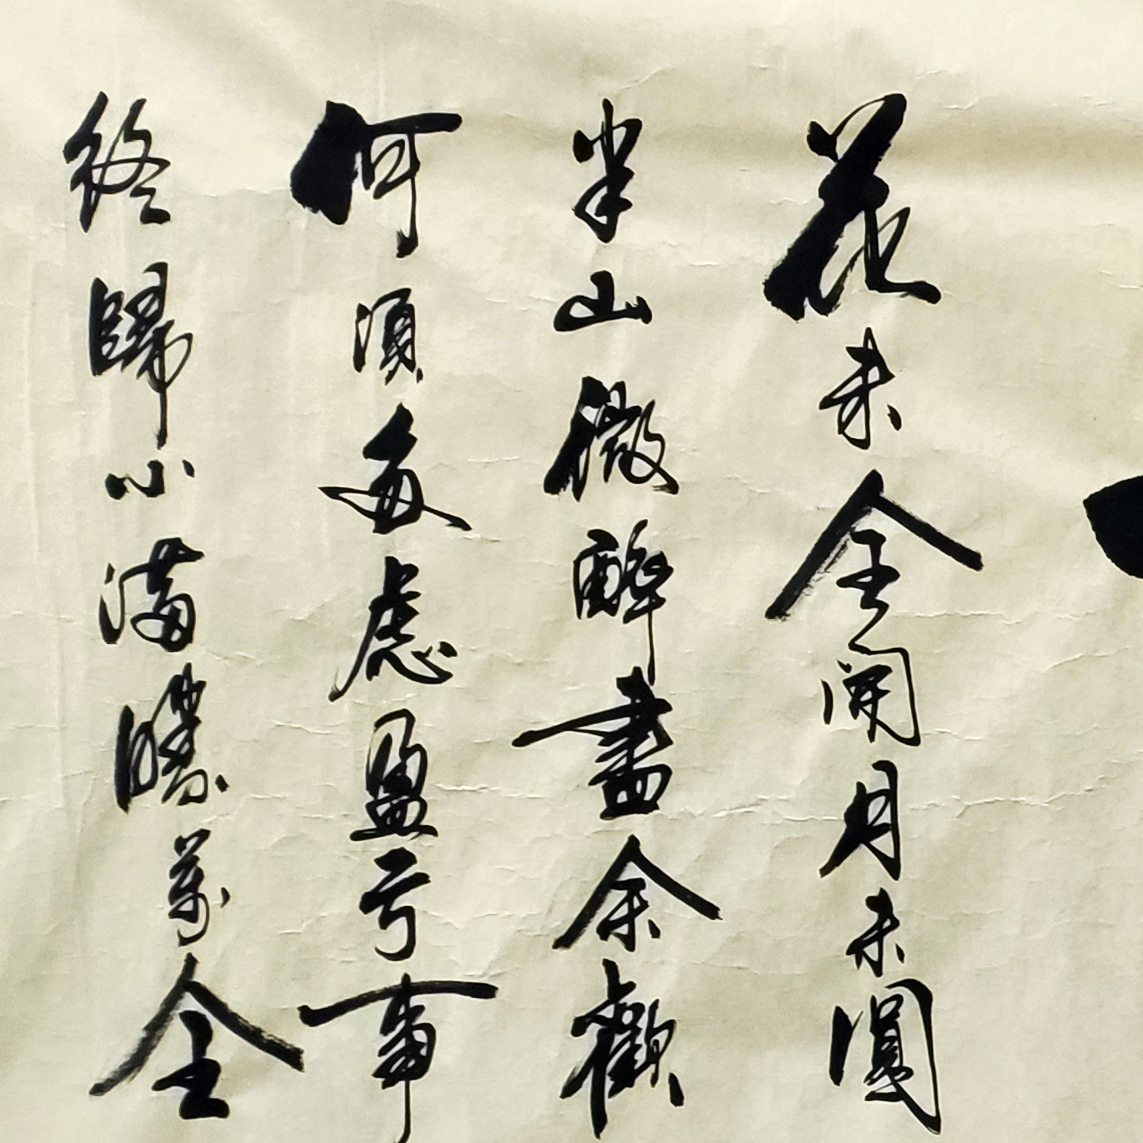 花未全開月未圓
半山微醉盡余歡
何須多慮盈亏事
終歸小滿勝萬全